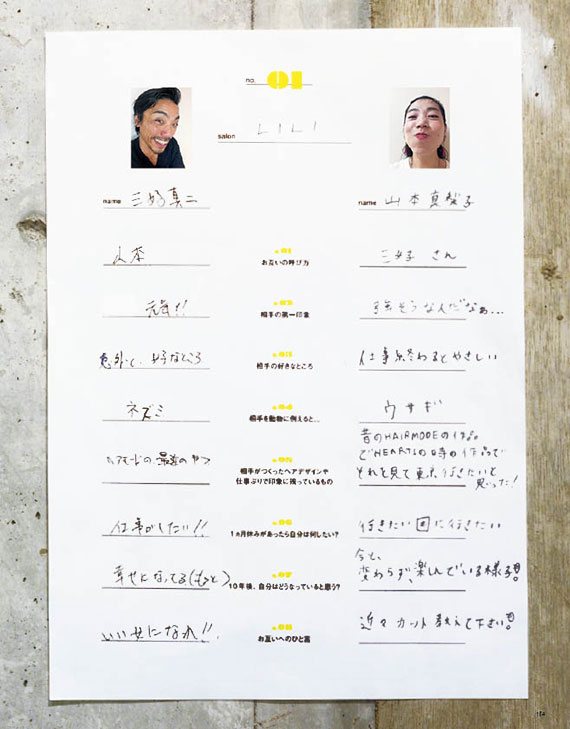 no. 01
salon LILI
name 三好真二
name 山本真梨子
.01
お互いの呼び方
山本
三好さん
.02
相手の第一印象
元気!!
強そうなんだなぁ...
.03
相手の好きなところ
意外と、好きなところ
仕事終わるとやさしい
.04
相手を動物に例えると...
ネズミ
ウサギ
.05
相手がつくったヘアデザインや
仕事ぶりで印象に残っているもの
ヘアモードの、最後のやつ
昔のHAIRMODEの作品。
でHEARTSの時の作品で
それを見て東京行きたいと
思った!
.06
1ヵ月休みがあったら自分は何したい?
仕事がしたい!!
行きたい国に行きたい
.07
10年後、自分はどうなっていると思う?
幸せになってる(もっと)
今と、
変わらず、楽しんでいる様子!
.08
お互いへのひと言
いい女になれ!!
近々カット教えて下さい!